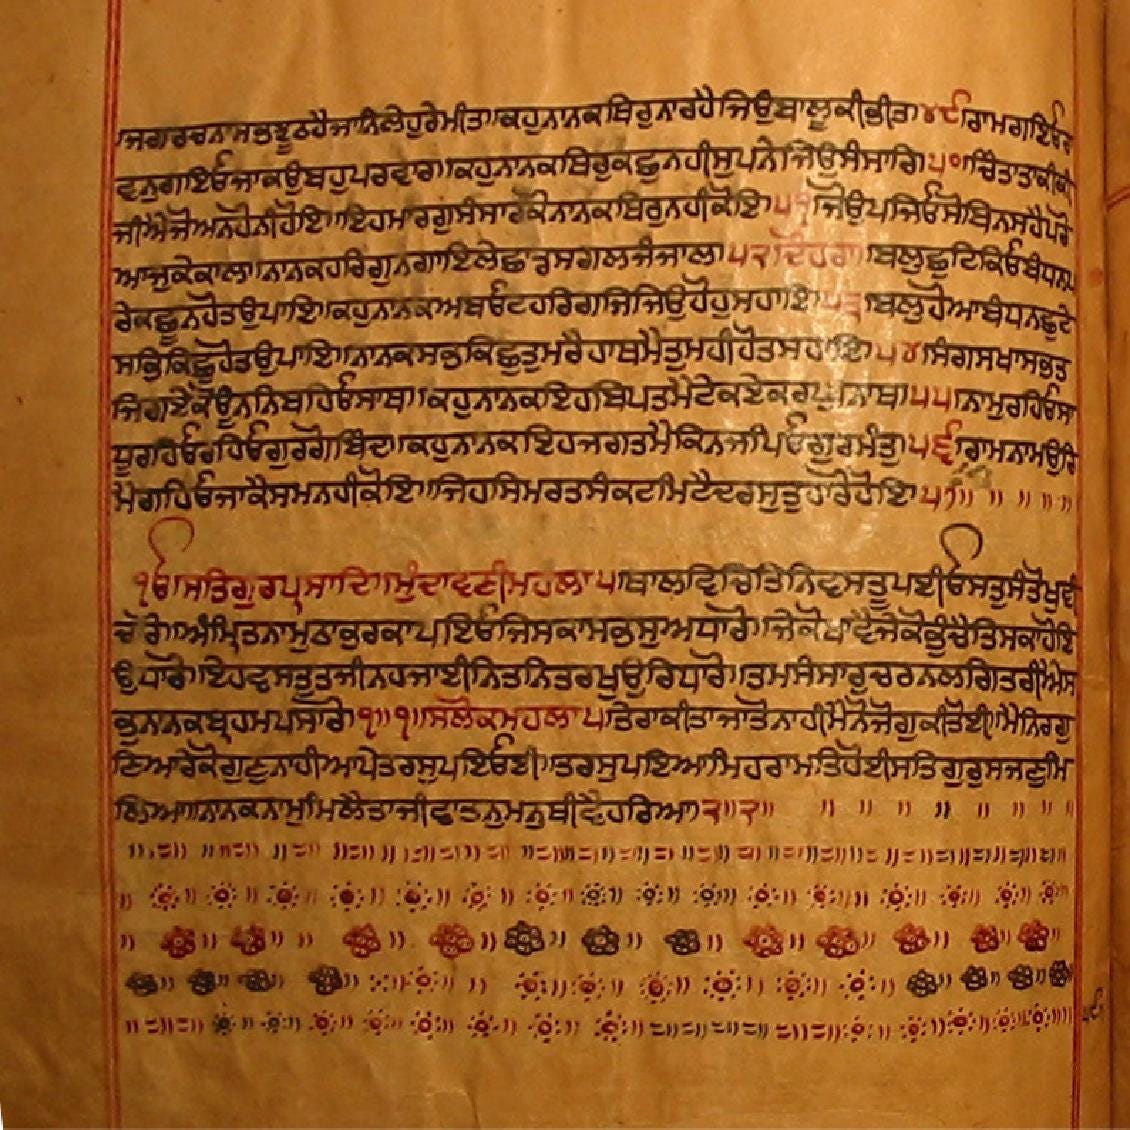 ਜਗਰਚਨਾਸਭਝੂਠਹੈਜਾਨਿਲੇਹੁਰੇਮੀਤ।ਕਹੁਨਾਨਕਥਿਰੁਨਾਰਹੈਜਿਉਬਾਲੂਕੀਭੀਤ।੪੯।ਰਾਮਗਇਓਰਾ
ਵਨੁਗਇਓਜਾਕਉਬਹੁਪਰਵਾਰ।।ਕਹੁਨਾਨਕਥਿਰੁਕਛੁਨਹੀਸੁਪਨੇਜਿਉਸੰਸਾਰਿ।੫੦।ਚਿੰਤਾਤਾਕੀਕੀ
ਜੀਐਜੋਅਨਹੋਨੀਹੋਇ।।ਇਹਮਾਰਗੁਸੰਸਾਰਕੋਨਾਨਕਥਿਰੁਨਹੀਕੋਇ।੫੧।ਜੋਉਪਜਿਓਸੋਬਿਨਸਹੈਪਰੋ
ਆਜੁਕੇਕਾਲ।।ਨਾਨਕਹਰਿਗੁਨਗਾਇਲੇਛਾਡਸਗਲਜੰਜਾਲ।੫੨।ਦੋਹਰਾ।।ਬਲੁਛੁਟਿਕਿਓਬੰਧਨਪ
ਰੇਕਛੂਨਹੋਤਉਪਾਇ।।ਕਹੁਨਾਨਕਅਬਓਟਹਰਿਗਜਿਜਿਉਹੋਹੁਸਹਾਇ।੫੩।ਬਲੁਹੋਆਬੰਧਨਛੁਟੇ
ਸਭੁਕਿਛੁਹੋਤਉਪਾਇ।।ਨਾਨਕਸਭੁਕਿਛੁਤੁਮਰੈਹਾਥਮੈਤੁਮਹੀਹੋਤਸਹਾਇ।੫੪।ਸੰਗਸਖਾਸਭਤ
ਜਿਗਏਕੋਊਨਨਿਬਹਿਓਸਾਥ।।ਕਹੁਨਾਨਕਇਹਬਿਪਤਮੈਟੇਕਏਕਰਘੁਨਾਥ।੫੫।ਨਾਮੁਰਹਿਓਸਾ
ਧੂਰਹਿਓਰਹਿਓਗੁਰਗੋਬਿੰਦ।।ਕਹੁਨਾਨਕਇਹਜਗਤਮੈਕਿਨਜਪਿਓਗੁਰਮੰਤੁ।੫੬।ਰਾਮਨਾਮਉਰਿ
ਮੈਗਹਿਓਜਾਕੈਸਮਨਹੀਕੋਇ।।ਜਿਹਸਿਮਰਤਸੰਕਟਮਿਟੈਦਰਸੁਤੁਹਾਰੋਹੋਇ।੫੭।। ॥ ॥ ॥ ॥
ੴਸਤਿਗੁਰਪ੍ਰਸਾਦਿ।।ਮੁੰਦਾਵਣੀਮਹਲਾ੫।ਥਾਲਵਿਚਿਤਿੰਨਿਵਸਤੂਪਈਓਸਤੁਸੰਤੋਖੁਵੀ
ਚਾਰੋ।।ਅੰਮ੍ਰਿਤਨਾਮੁਠਾਕੁਰਕਾਪਇਓਜਿਸਕਾਸਭਸੁਅਧਾਰੋ।।ਜੇਕੋਖਾਵੈਜੇਕੋਭੁੰਚੈਤਿਸਕਾਹੋਇ
ਉਧਾਰੋ।।ਇਹਵਸਤੁਤਜੀਨਹਜਾਈਨਿਤਨਿਤਰਖੁਉਰਿਧਾਰੋ।।ਤਮਸੰਸਾਰੁਚਰਨਲਗਿਤਰੀਐਸ
ਭੁਨਨਕਬ੍ਰਹਮਪਸਾਰੋ।੧।।੧।।ਸਲੋਕਮਹਲਾ੫।ਤੇਰਾਕੀਤਾਜਾਤੋਨਾਹੀਮੈਨੋਜੋਗੁਕੀਤੋਈ।।ਮੈਨਿਰਗੁ
ਣਿਆਰੇਕੋਗੁਣੁਨਾਹੀਆਪੇਤਰਸੁਪਇਓਈ।।ਤਰਸੁਪਇਆਮਿਹਰਾਮਤਿਹੋਈਸਤਿਗੁਰੁਸਜਣੁਮਿ
ਲਿਆ।।ਨਾਨਕਨਾਮੁਮਿਲੈਤਾਜੀਵਾਤਨੁਮਨੁਥੀਵੈਹਰਿਆ।੨।।੨।। ॥ ॥ ॥ ॥ ॥ ॥ ॥